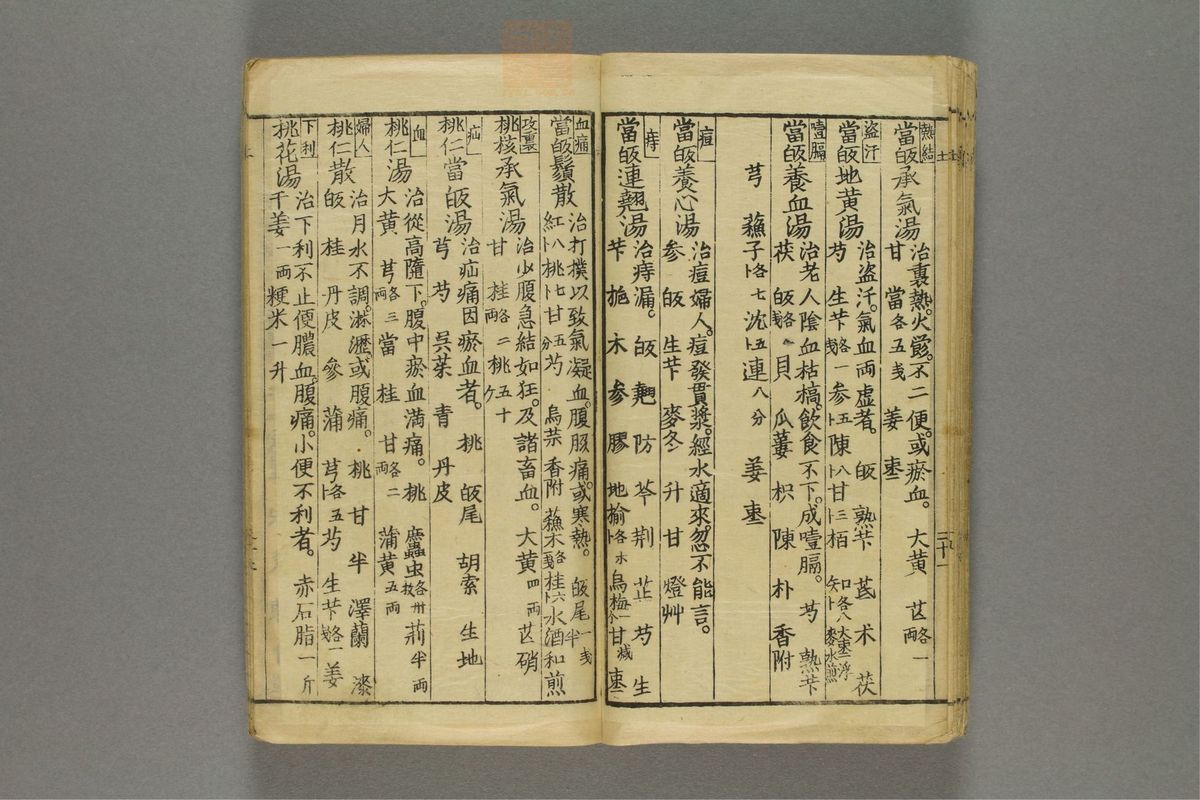 熱結
當皈承氣湯
治裏熱。火鬱。不二便。或瘀血。 大黄 芒各一両
甘 當各五戔 姜 棗
盗汗
當皈地黄湯
治盗汗。氣血両虚者。 皈 熟芐 芪 术 茯
芍 生芐各一戔 参五卜 陳八卜 甘三卜 栢 各八 大棗 浮麥水煎
噎膈
當皈養血湯
治老人陰血枯槁。飲食不下。成噎膈。 芍 熟芐
茯 皈各戔 貝 瓜蔞 枳 陳 朴 香附
芎 蘓子各七卜 沈五卜 連八分 姜 棗
痘
當皈養心湯
治痘婦人。痘發貫漿。經水適來。忽不能言。
参 皈 生芐 麥冬 升 甘 燈艸
痔
當皈連翹湯
治痔漏。 皈 翹 防 芩 荆 芷 芍 生
芐 梔 木 参 膠 地榆各卜 水 烏梅一个 甘減 棗
血痛
當皈鬚散
治打撲以致氣凝血。腹脹痛。或寒熱。 皈尾一戔半
紅八卜 桃七卜 甘五分 芍 烏茱 香附 蘓木各戔 桂六卜 水酒和煎
攻裏
桃核承氣湯
治少腹急結如狂。及諸畜血。 大黄四両 芒硝
甘 桂各二両 桃五十ケ
疝
桃仁當皈湯
治疝痛因瘀血者。 桃 皈尾 胡索 生地
芎 芍 呉茱 青 丹皮
血
桃仁湯
治從高隨下。腹中瘀血満痛。 桃 䗪虫各卅枚 荊半両
大黄 芎各三両 當 桂 甘各二両 蒲黄五両
婦人
桃仁散
治月水不調。淋瀝。或腹痛。 桃 甘 半 澤蘭 漆
皈 桂 丹皮 参 蒲 芎各五卜 芍 生芐各一戔 姜
下利
桃花湯
治下利不止便膿血。腹痛。小便不利者。 赤石脂一斤
干姜一両 粳米一升